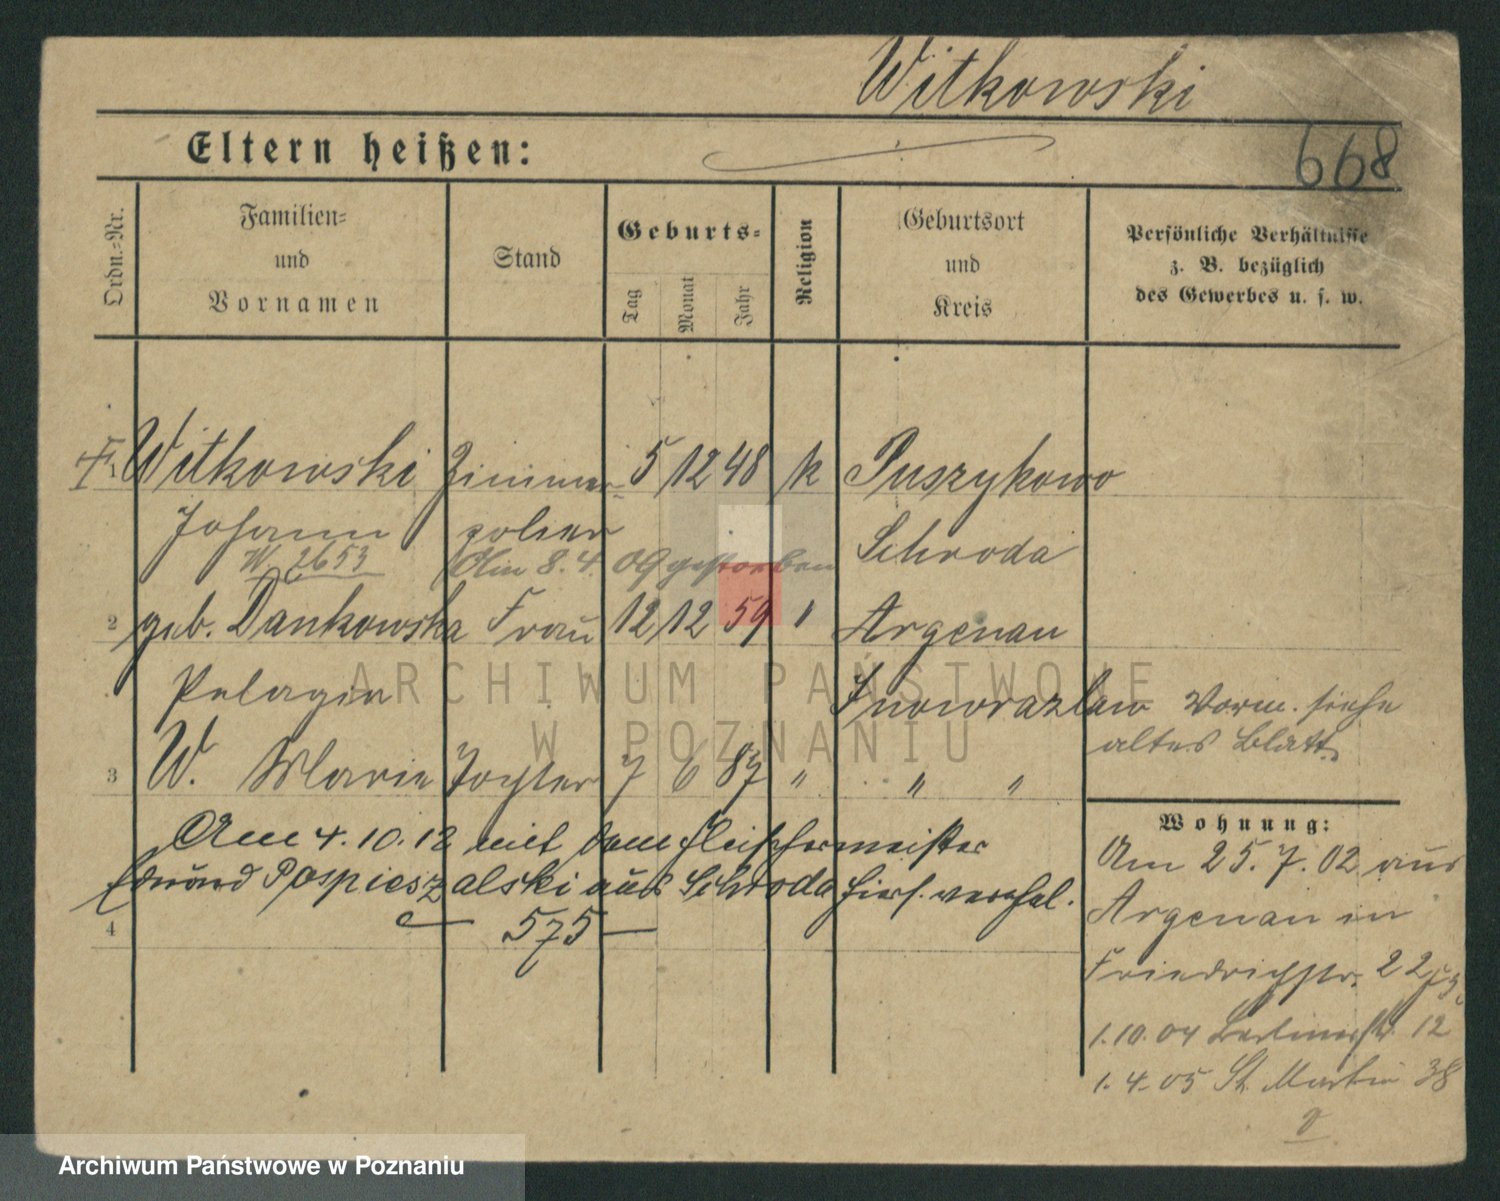 Witkowski
668
Eltern heißen:
Ordn.-Nr.
Familien-
und
Vornamen
Stand
Geburts-
Tag
Monat
Jahr
Religion
Geburtsort
und
Kreis
Persönliche Verhältnisse
z. B. bezüglich
des Gewerbes u. s. w.
1 Witkowski Zimmer- 5 12 48 k Puszykowo
Johann polier Schroda
W. 2653 Am 8.4.09 gestorben
2 geb. Dankowska Frau 12 12 59 " Argenau
Pelagia Inowrazlaw
Vorm. siehe
altes Blatt
3 W. Marie Tochter 7 6 87 " " "
Am 4.10.12 mit dem Fleischermeister
Eduard Pospieszalski aus Schroda hier verehel.
4
575
Wohnung:
Am 25.7.02 aus
Argenau in
Friedrichstr. 22
1.10.04 Berlinerstr. 12
1.4.05 St. Martin 38
ARCHIWUM PAŃSTWOWE
W POZNANIU
Archiwum Państwowe w Poznaniu